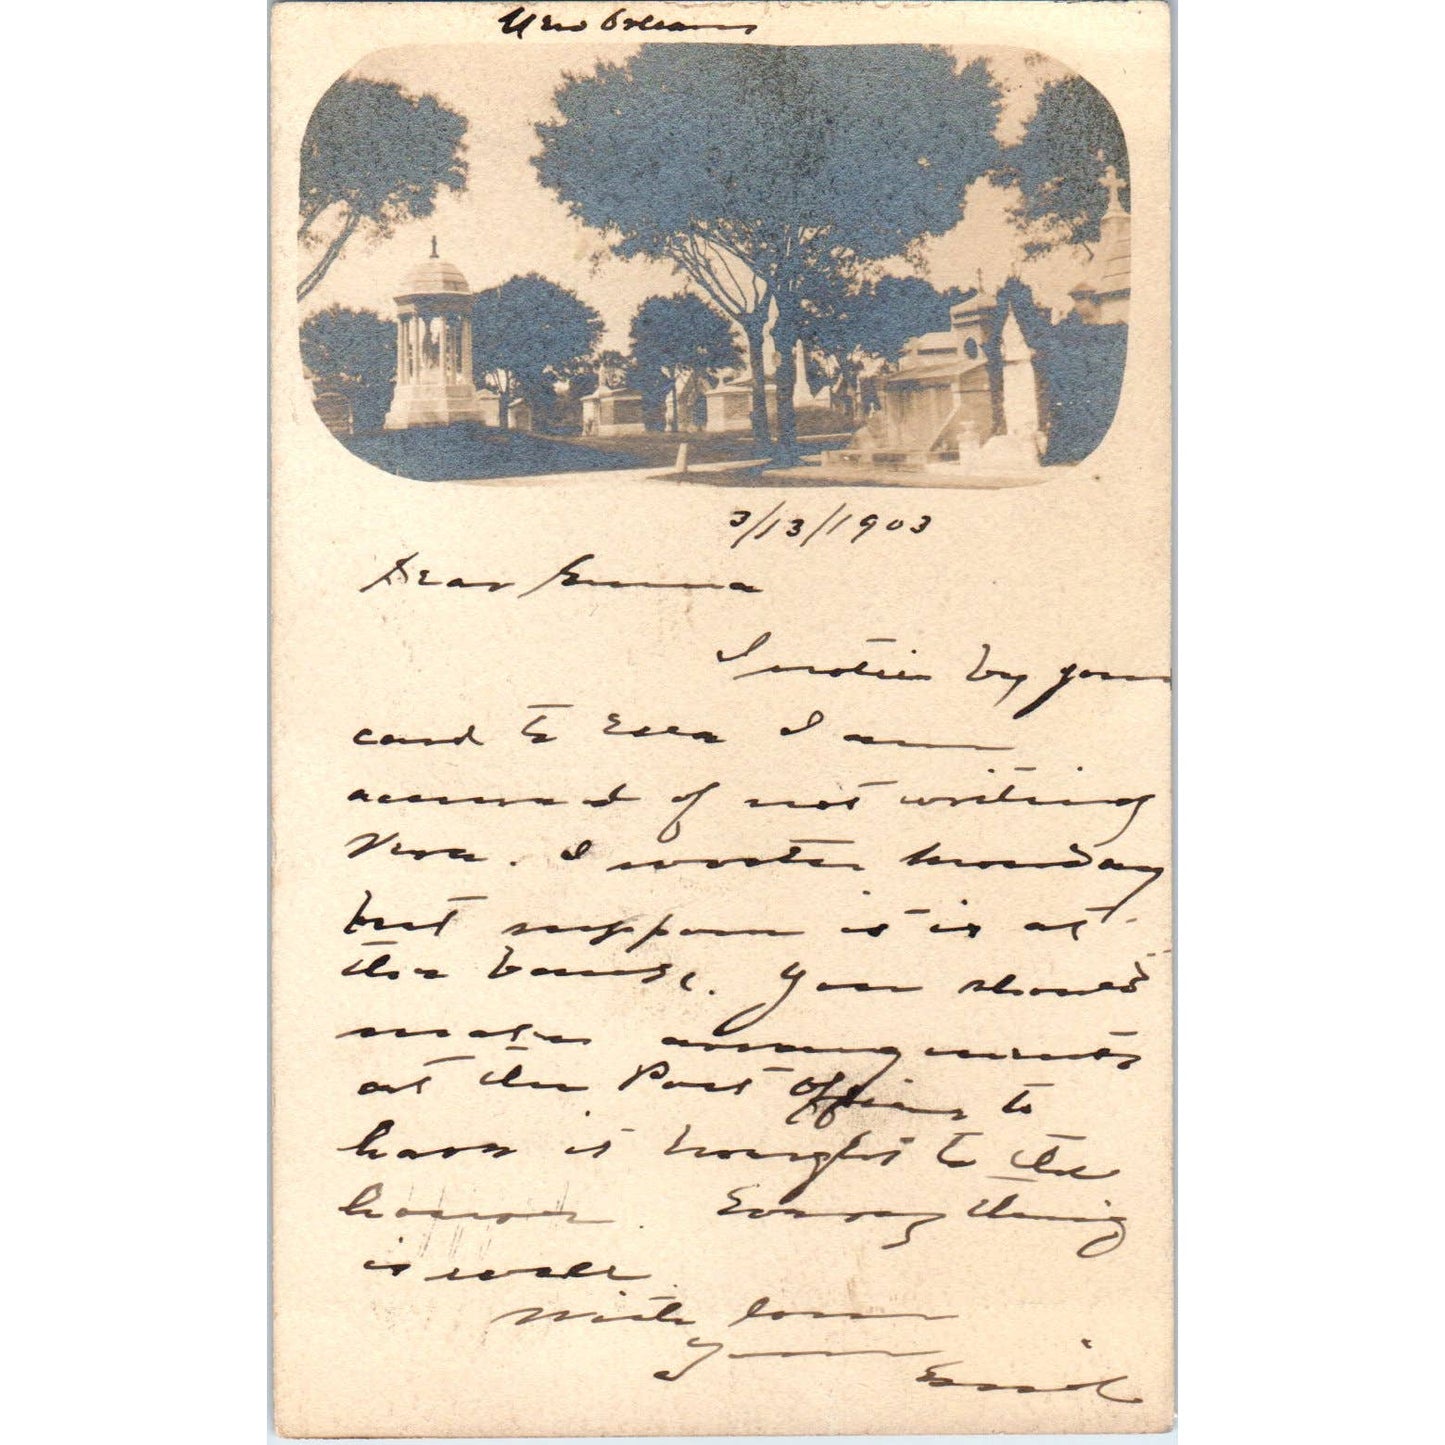 New Orleans
3/13/1903
Dear Emma
I notice by your
card to Ella I am
accused of not writing
Nova. I wrote Monday
but suppose it is at
the bank. You should
make arrangements
at the Post Office to
have it brought to the
house. Everything
is well
With love
Yours Enid